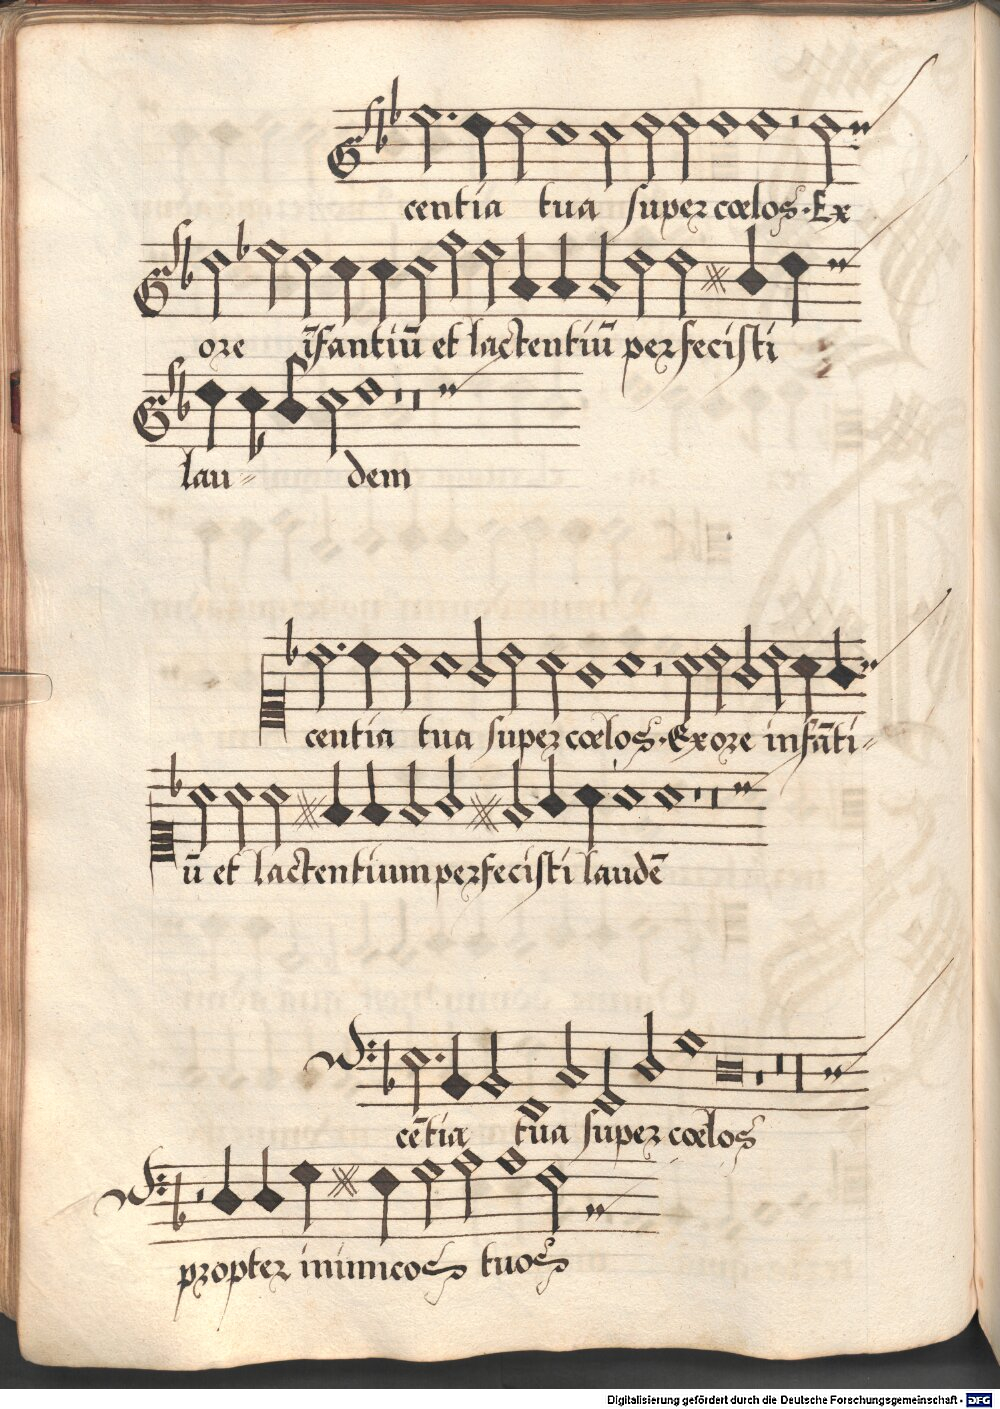 centia tua super cœlos. Ex
ore īfantiū et lactentiū perfecisti
lau= dem
centia tua super cœlos. Ex ore infāti=
ū et lactentium perfecisti laudē
cētia tua super cœlos
propter inimicos tuos
Digitalisierung gefördert durch die Deutsche Forschungsgemeinschaft - DFG